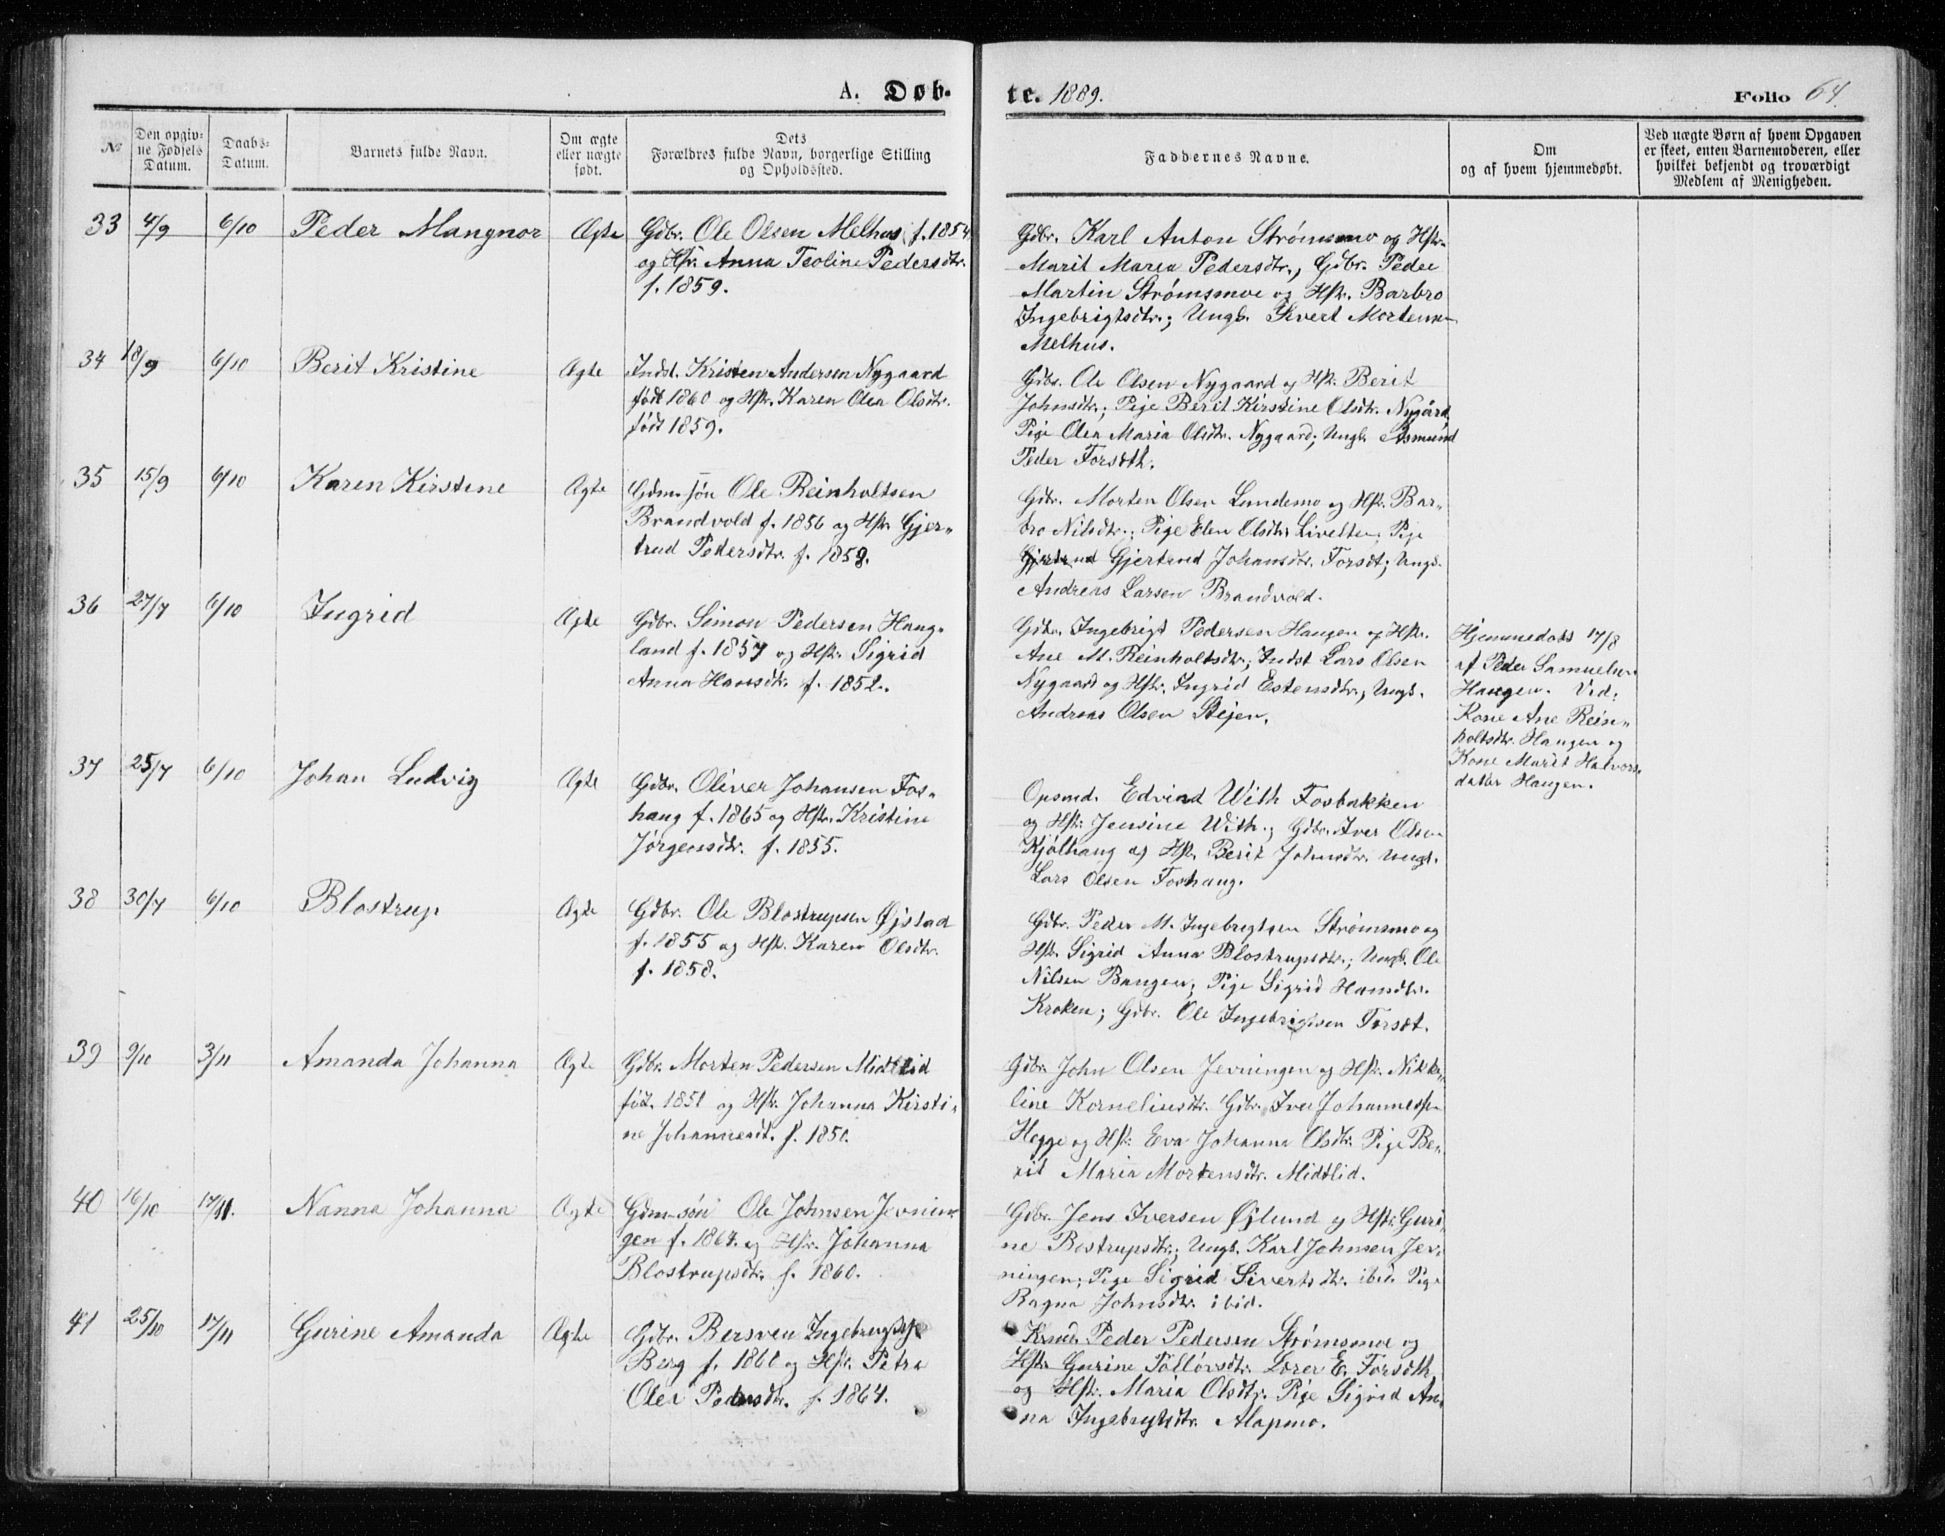 A. Døb-
te. 1889.
Folio 64.
№
Den opgiv-
ne Fødsels
Datum.
Daabs-
Datum.
Barnets fulde Navn.
Om ægte
eller uægte
født.
Dets
Forældres fulde Navn, borgerlige Stilling
og Opholdssted.
Faddernes Navne.
Om
og af hvem hjemmedøbt.
Ved uægte Børn af hvem Opgaven
er skeet, enten Barnemoderen, eller
hvilket bekjendt og troværdigt
Medlem af Menigheden.
33 4/9 6/10 Peder Mangnor Ægte
Gdbr. Ole Olsen Melhus f. 1854
og Hst. Anna Teoline Pedersdtr.
f. 1859.
Gdbr. Karl Anton Strømsmo og Hst.
Marit Marea Pedersdtr., Gdbr. Peder
Martin Strømsmoe og Hst. Barbro
Ingebrigtsdtr.; Ungk. Sivert Mortensen
Melhus.
34 18/9 6/10 Berit Kristine Ægte
Indst. Kristen Andersen Nygaard
født 1860 og Hst. Karen Olea Olsdtr.
født 1859.
Gdbr. Ole Olsen Nygaard og Hst. Berit
Johnsdtr.; Pige Berit Kirstine Olsdtr. Nygård
Pige Olea Maria Olsdtr. Nygaard; Ungk. Asmund
Peder Forsøth.
35 15/9 6/10 Karen Kirstine Ægte
Gdm. søn Ole Reinholtsen
Brandvold f. 1856 og Hst. Gjer-
trud Pedersdtr. f. 1859.
Gdbr. Morten Olsen Lundemo og Hst. Bar-
bro Nilsdtr.; Pige Elen Olsdtr. Livelten; Pige
Gjertrud Gjertrud Johansdtr. Forsøt; Ungk.
Andreas Larsen Brandvold.
36 27/7 6/10 Ingrid Ægte
Gdbr. Simon Pedersen Haug-
land f. 1857 og Hst. Sigrid
Anna Hansdtr. f. 1852.
Gdbr. Ingebrigt Pedersen Haugen og Hst.
Ane M. Reinholtsdtr.; Indst Lars Olsen
Nygaard og Hst. Ingrid Estensdtr., Ungk.
Andreas Olsen Stejen.
Hjemmedøbt 17/8
af Peder Samuelsen
Haugen. Vid:
Kone Ane Rein-
holtsdtr. Haugen og
Kone Marit Halvors-
datter Haugen.
37 25/7 6/10 Johan Ludvig Ægte
Gdbr. Oliver Johansen Fos-
haug f. 1865 og Hst. Kristine
Jørgensdtr. f. 1855.
Opsmd. Edvind With Fosbakken
og Hst. Jensine With.; Gdbr. Iver Olsen
Kjølhaug og Hst. Berit Johnsdtr. Ungk.
Lars Olsen Foshaug.
38 30/7 6/10 Blostrup Ægte
Gdbr. Ole Blostrupsen Øjstad
f. 1855 og Hst. Karen Olsdtr.
f. 1858.
Gdbr. Peder M. Ingebrigtsen Strømsmo og
Hst. Sigrid Anna Blostrupsdtr.; Ungk. Ole
Nilsen Bangen; Pige Sigrid Hansdtr.
Kroken; Gdbr. Ole Ingebrigtsen Forsøt.
39 9/10 3/11 Amanda Johanna Ægte
Gdbr. Morten Pedersen Midtlid
født. 1851 og Hst. Johanna Kirsti-
ne Johannesdt. f. 1850.
Gdbr. John Olsen Jevningen og Hst. Nikko-
line Korneliusdtr. Gdbr. Iver Johannessen
Hegge og Hst. Eva Johanna Olsdtr. Pige Be-
rit Maria Mortensdtr. Midtlid.
40 16/10 17/11. Nanna Johanna Ægte
Gdm-søn Ole Johnsen Jevnin-
gen f. 1864. og Hst. Johanna
Blostrupsdtr. f. 1860.
Gdbr. Jens Iversen Øjlund og Hst. Guri-
ne Bostrupsdtr.; Ungk. Karl Johnsen Jev-
ningen; Pige Sigrid Sivertsdtr. ibid. Pige
Ragna Johnsdtr. ibid.
41 25/10 17/11 Gurine Amanda Ægte
Gdbr. Bersven Ingebrigts.
Berg f. 1860 og Hst. Petra
Olea Pedersdtr. f. 1864.
Peder Pedersen Strømsmoe og
Hst. Gurine Tølløvsdtr. Lærer E. Forsøth
og Hst. Maria Olsdtr. Pige Sigrid An-
na Ingebrigtsdtr. Alapmo.